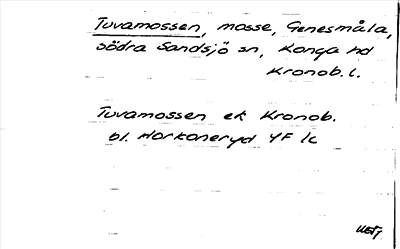 Tuvamossen, mosse, Genesmåla,
södra Sandsjö sn, Konga hd
Kronob. l.
Tuvamossen ek Kronob.
bl. Horkoneryd 4F lc